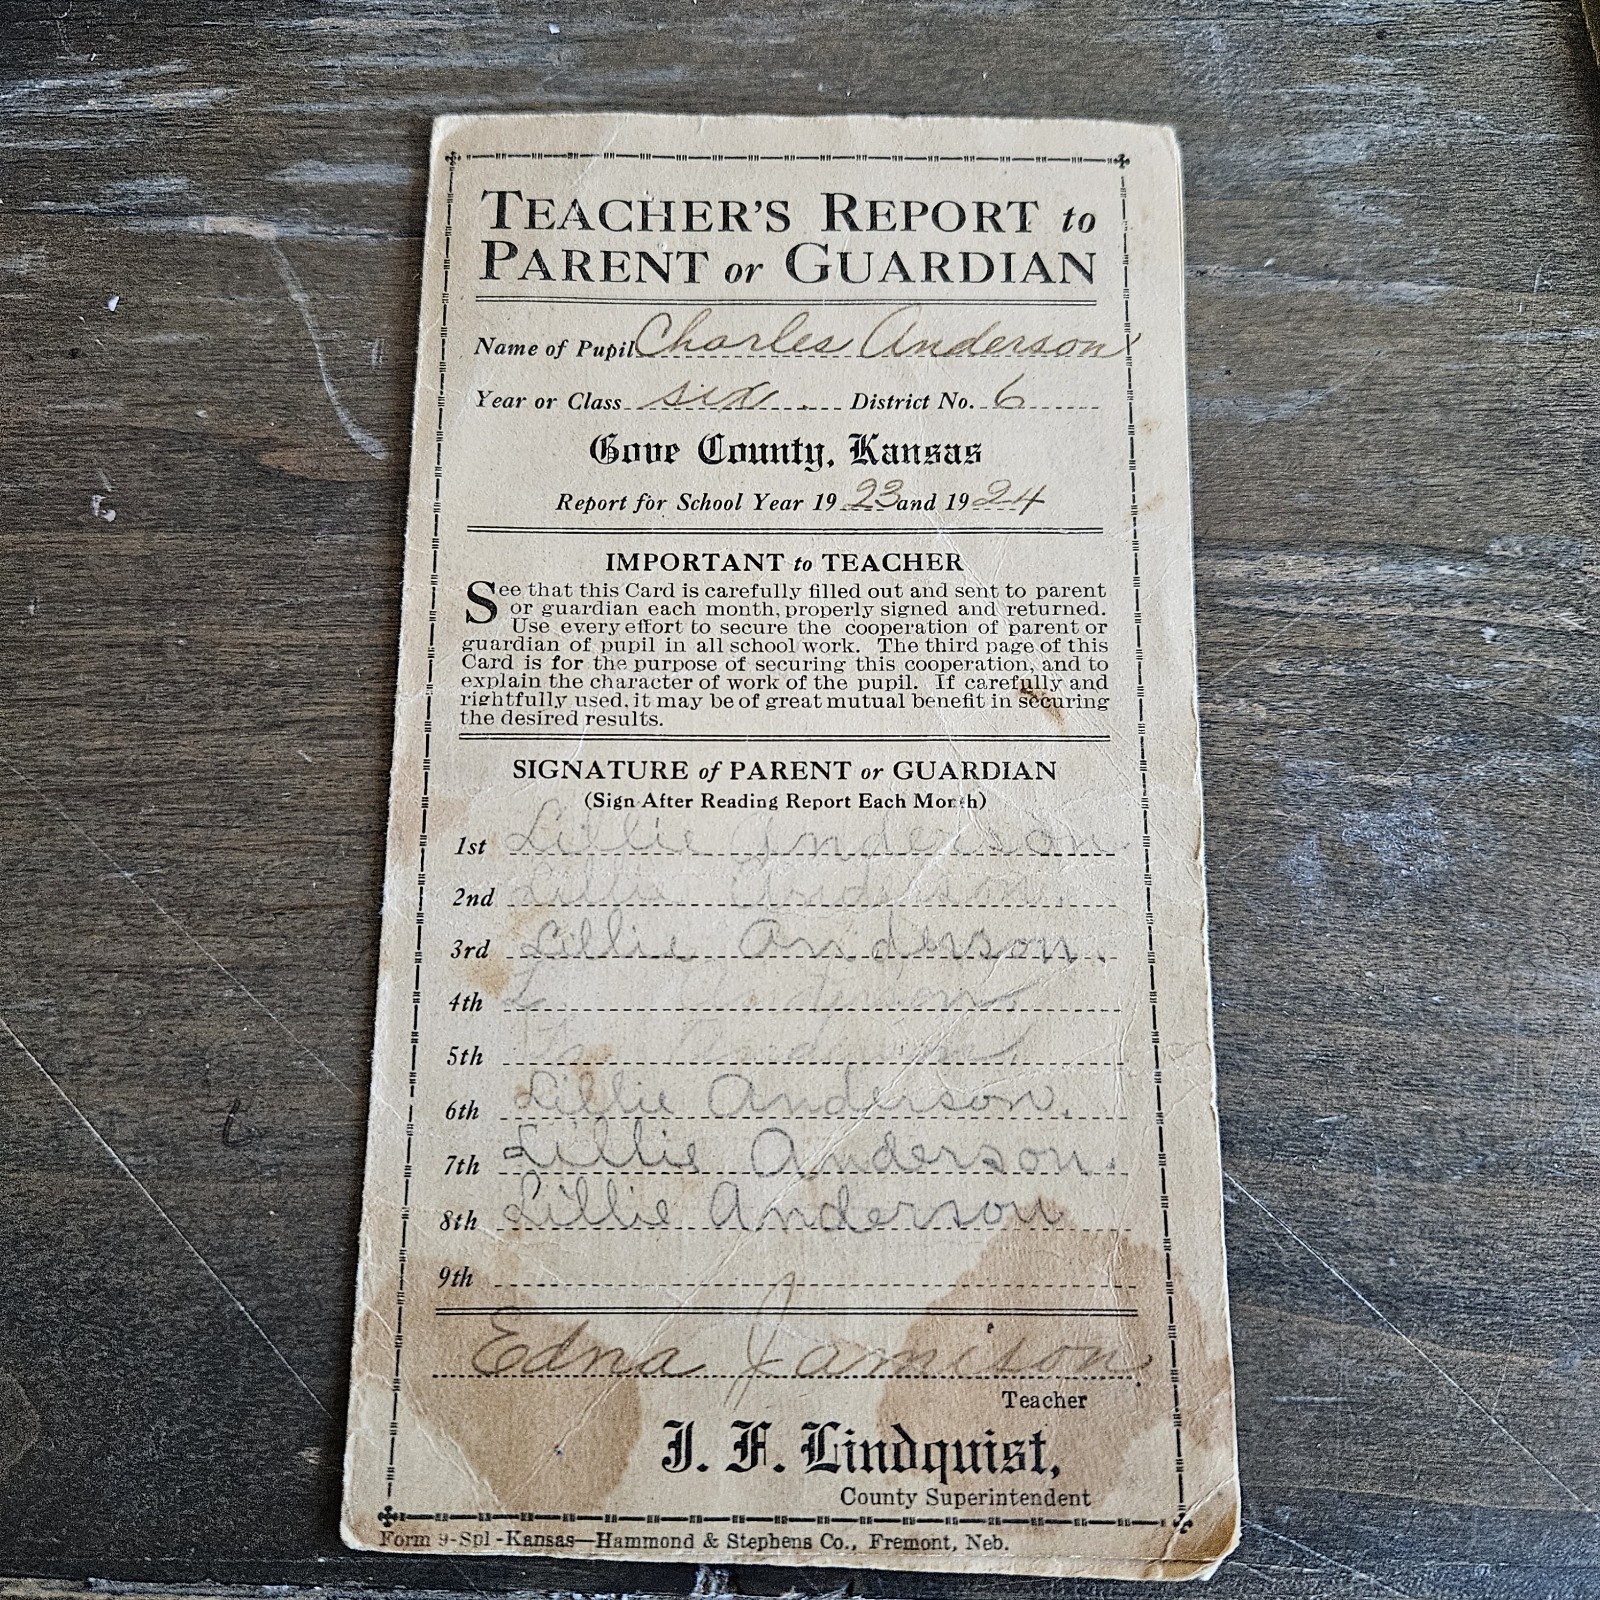 TEACHER'S REPORT to
PARENT or GUARDIAN
Name of Pupil Charles Anderson
Year or Class six. District No. 6
Gove County, Kansas
Report for School Year 1923 and 1924
IMPORTANT to TEACHER
See that this Card is carefully filled out and sent to parent
or guardian each month, properly signed and returned.
Use every effort to secure the cooperation of parent or
guardian of pupil in all school work. The third page of this
Card is for the purpose of securing this cooperation, and to
explain the character of work of the pupil. If carefully and
rightfully used, it may be of great mutual benefit in securing
the desired results.
SIGNATURE of PARENT or GUARDIAN
(Sign After Reading Report Each Month)
1st Lillie Anderson
2nd Lillie Anderson.
3rd Lillie Anderson.
4th L. Anderson.
5th Anderson.
6th Lillie Anderson.
7th Lillie Anderson.
8th Lillie Anderson
9th
Edna Jamison
Teacher
J. F. Lindquist,
County Superintendent
Form 9-Spl-Kansas—Hammond & Stephens Co., Fremont, Neb.